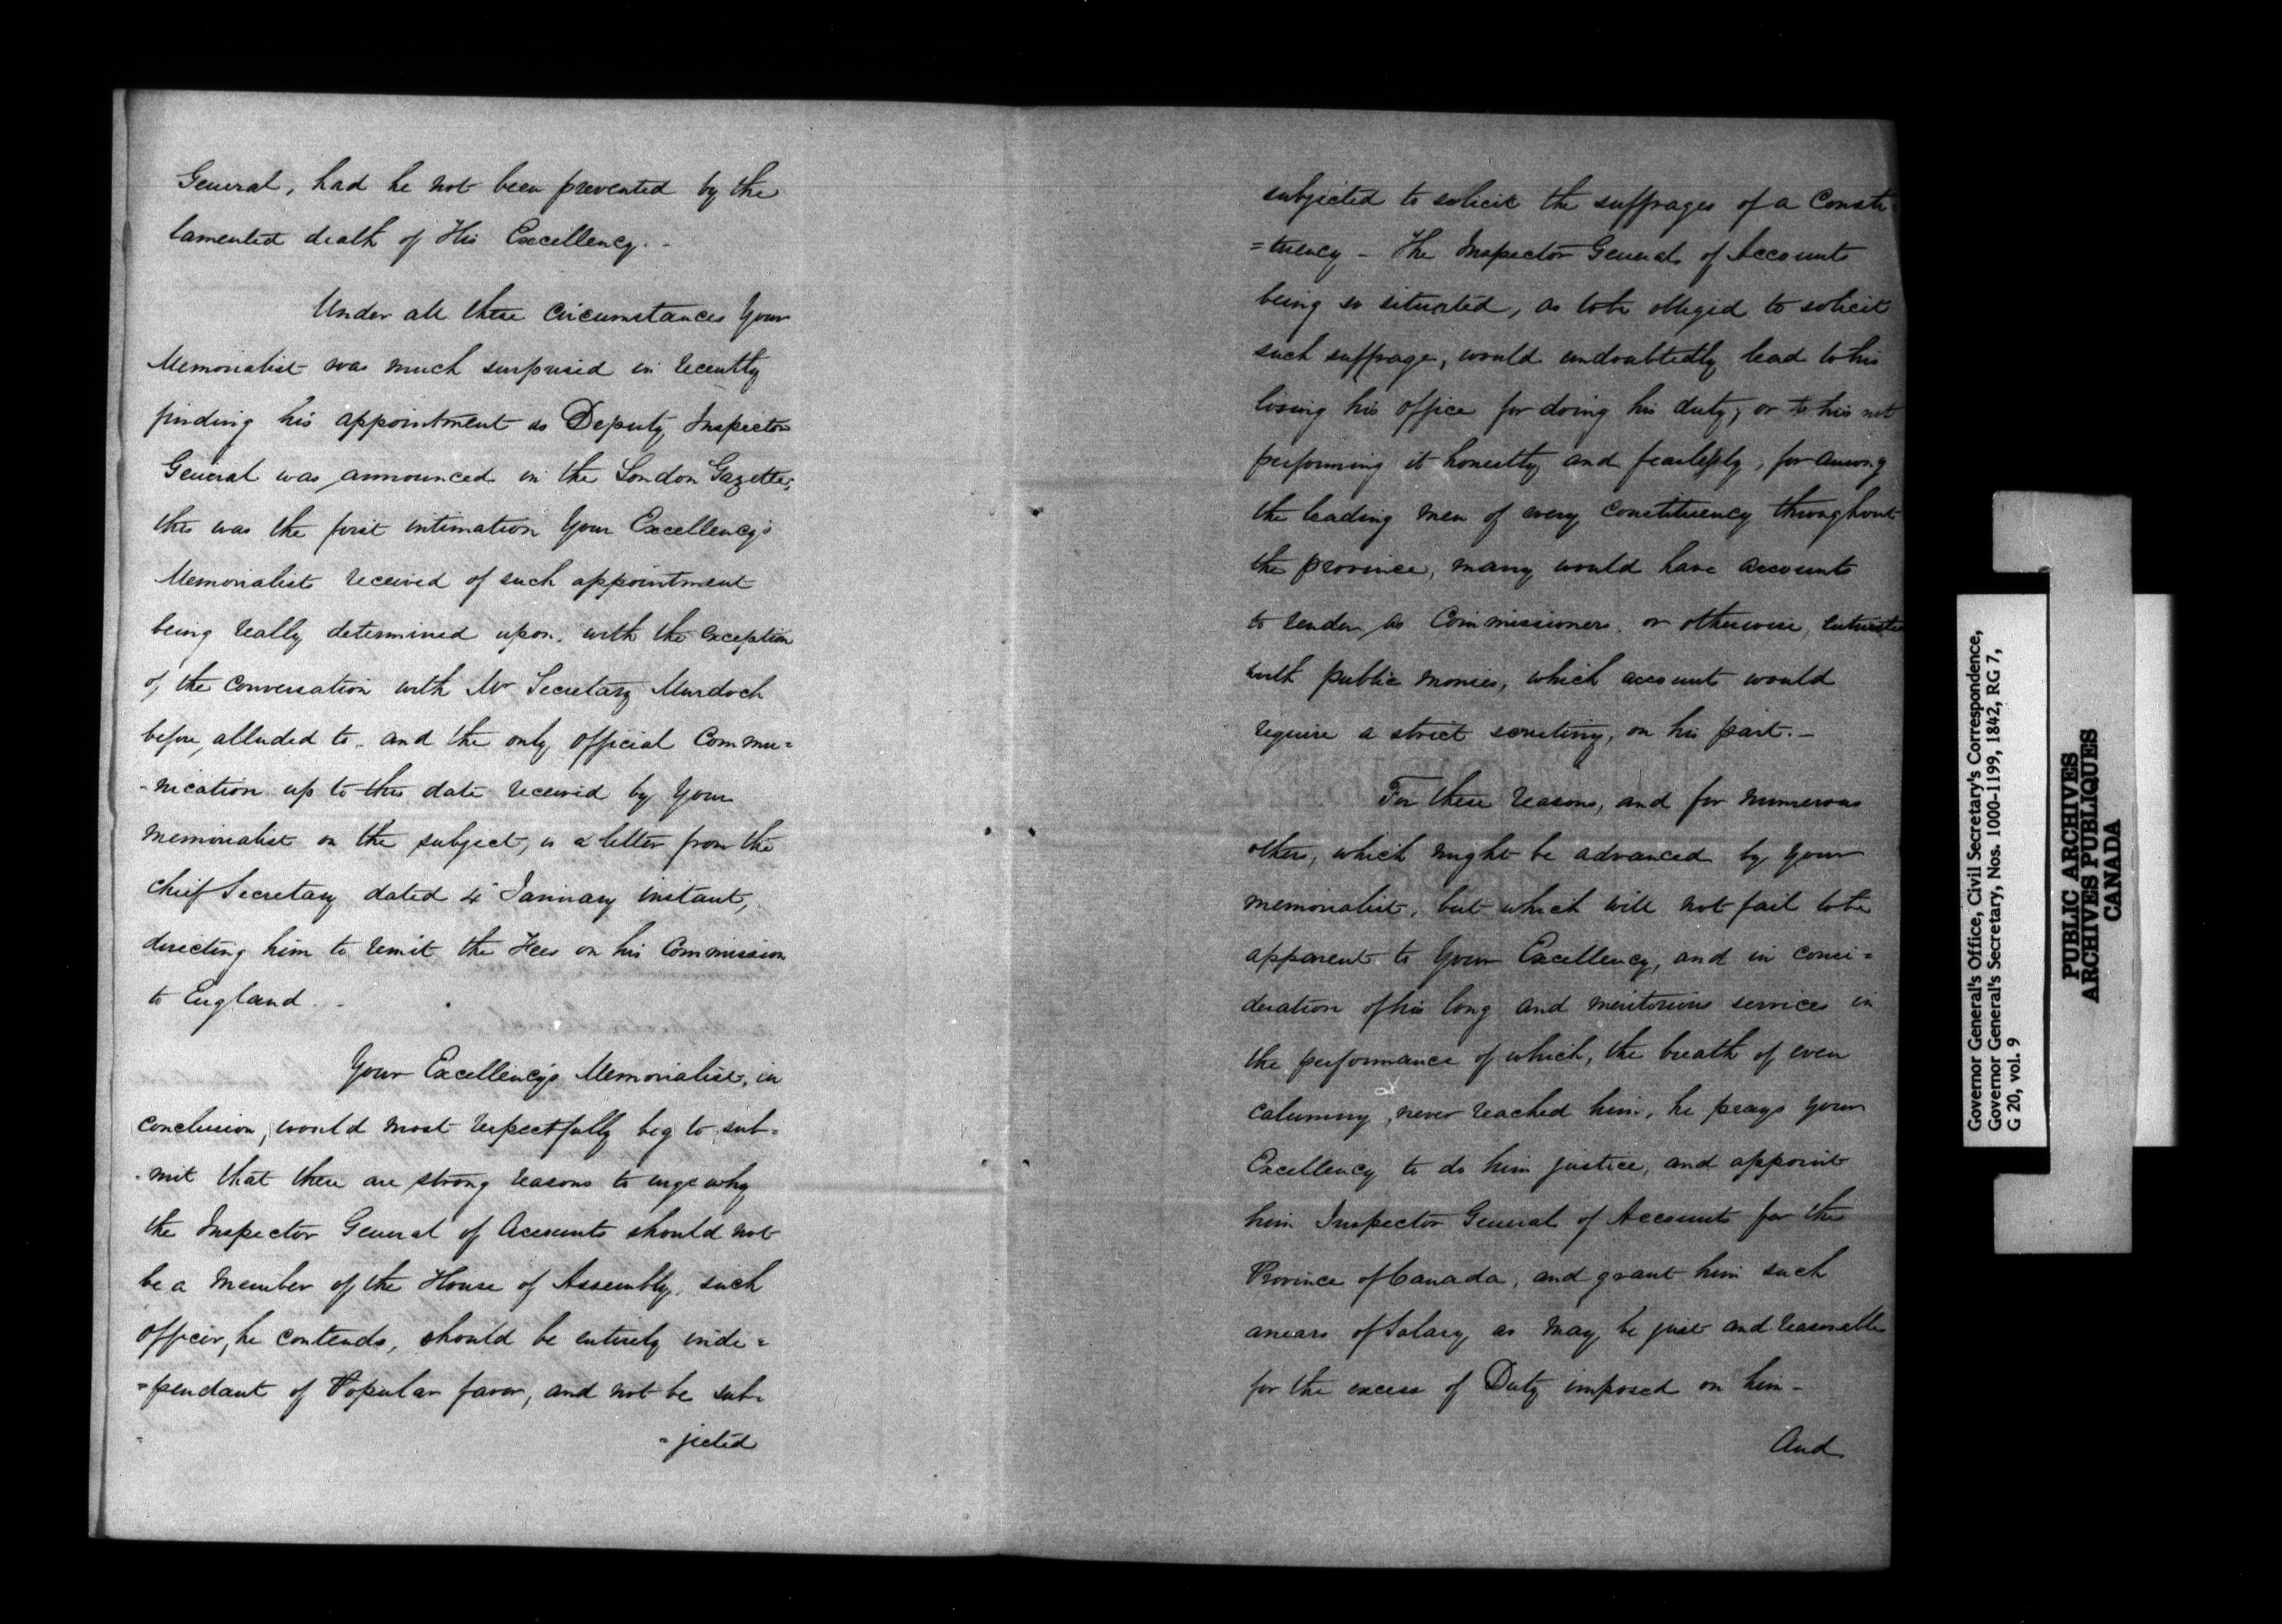 General, had he not been prevented by the
lamented death of His Excellency. -
Under all these circumstances Your
Memorialist was much surprised in recently
finding his appointment as Deputy Inspector
General was announced in the London Gazette;
this was the first intimation Your Excellency's
Memorialist received of such appointment
being really determined upon, with the exception
of the conversation with Mr Secretary Murdoch
before alluded to - and the only official Commu=
-nication up to this date received by Your
memorialist on the subject, is a letter from the
Chief Secretary dated 4 January instant,
directing him to remit the Fees on his Commission
to England. -
Your Excellency's Memorialist, in
conclusion, would most respectfully beg to sub=
-mit that there are strong reasons to urge why
the Inspector General of Accounts should not
be a Member of the House of Assembly, such
officer, he contends, should be entirely inde=
=pendant of Popular favor, and not be sub=
=jected
subjected to solicit the suffrages of a Consti=
=tuency - The Inspector General of Accounts
being so situated, as to be obliged to solicit
such suffrage, would undoubtedly lead to his
losing his office for doing his duty, or to his not
performing it honestly and fearlessly, for among
the leading men of every constituency throughout
the province, many would have accounts
to render as Commissioners, or otherwise,
with public monies, which accounts would
require a strict scrutiny, on his part. -
For these reasons, and for numerous
others, which might be advanced by Your
memorialist, but which will not fail to be
apparent to Your Excellency, and in consi=
deration of his long and meritorious services in
the performance of which, the breath of even
calumny never reached him, he prays Your
Excellency to do him justice, and appoint
him Inspector General of Accounts for the
Province of Canada, and grant him such
arrears of Salary as may be just and reasonable
for the excess of Duty imposed on him -
And
Governor General's Office, Civil Secretary's Correspondence,
Governor General's Secretary, Nos. 1000-1199, 1842, RG 7,
G 20, vol. 9
PUBLIC ARCHIVES
ARCHIVES PUBLIQUES
CANADA